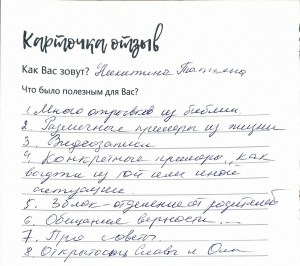 Карточка отзыв
Как Вас зовут? Никитина Татьяна
Что было полезным для Вас?
1. Много отрывков из библии
2. Различные примеры из жизни
3. Видеозаписи
4. Конкретные примеры, как
выйти из той или иной
ситуации.
5. Блок - отделение от родителей
6. Обещание верности...
7. Про советы
8. Открытость Славы и Оли